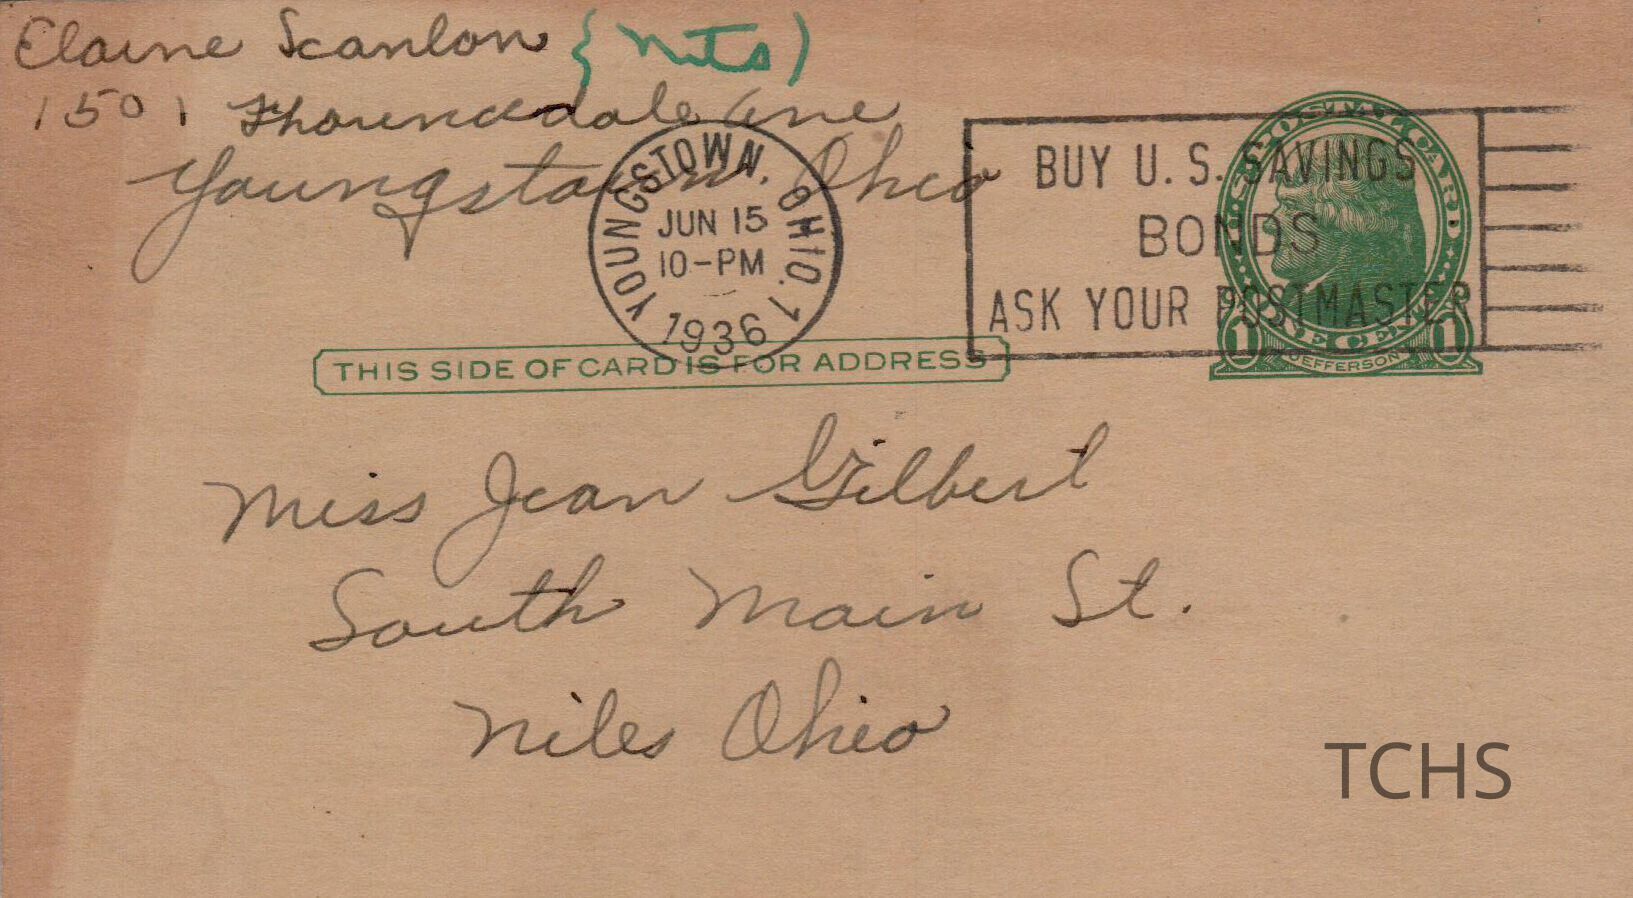 Elaine Scanlon {Nits)
1501 Ave
Youngstown Ohio
YOUNGSTOWN, OHIO. 1
JUN 15
10-PM
1936
BUY U. S. SAVINGS
BONDS
ASK YOUR POSTMASTER
U.S. POSTAL CARD
1 ONE CENT 1
JEFFERSON
THIS SIDE OF CARD IS FOR ADDRESS
Miss Jean Gilbert
South Main St.
Niles Ohio
TCHS